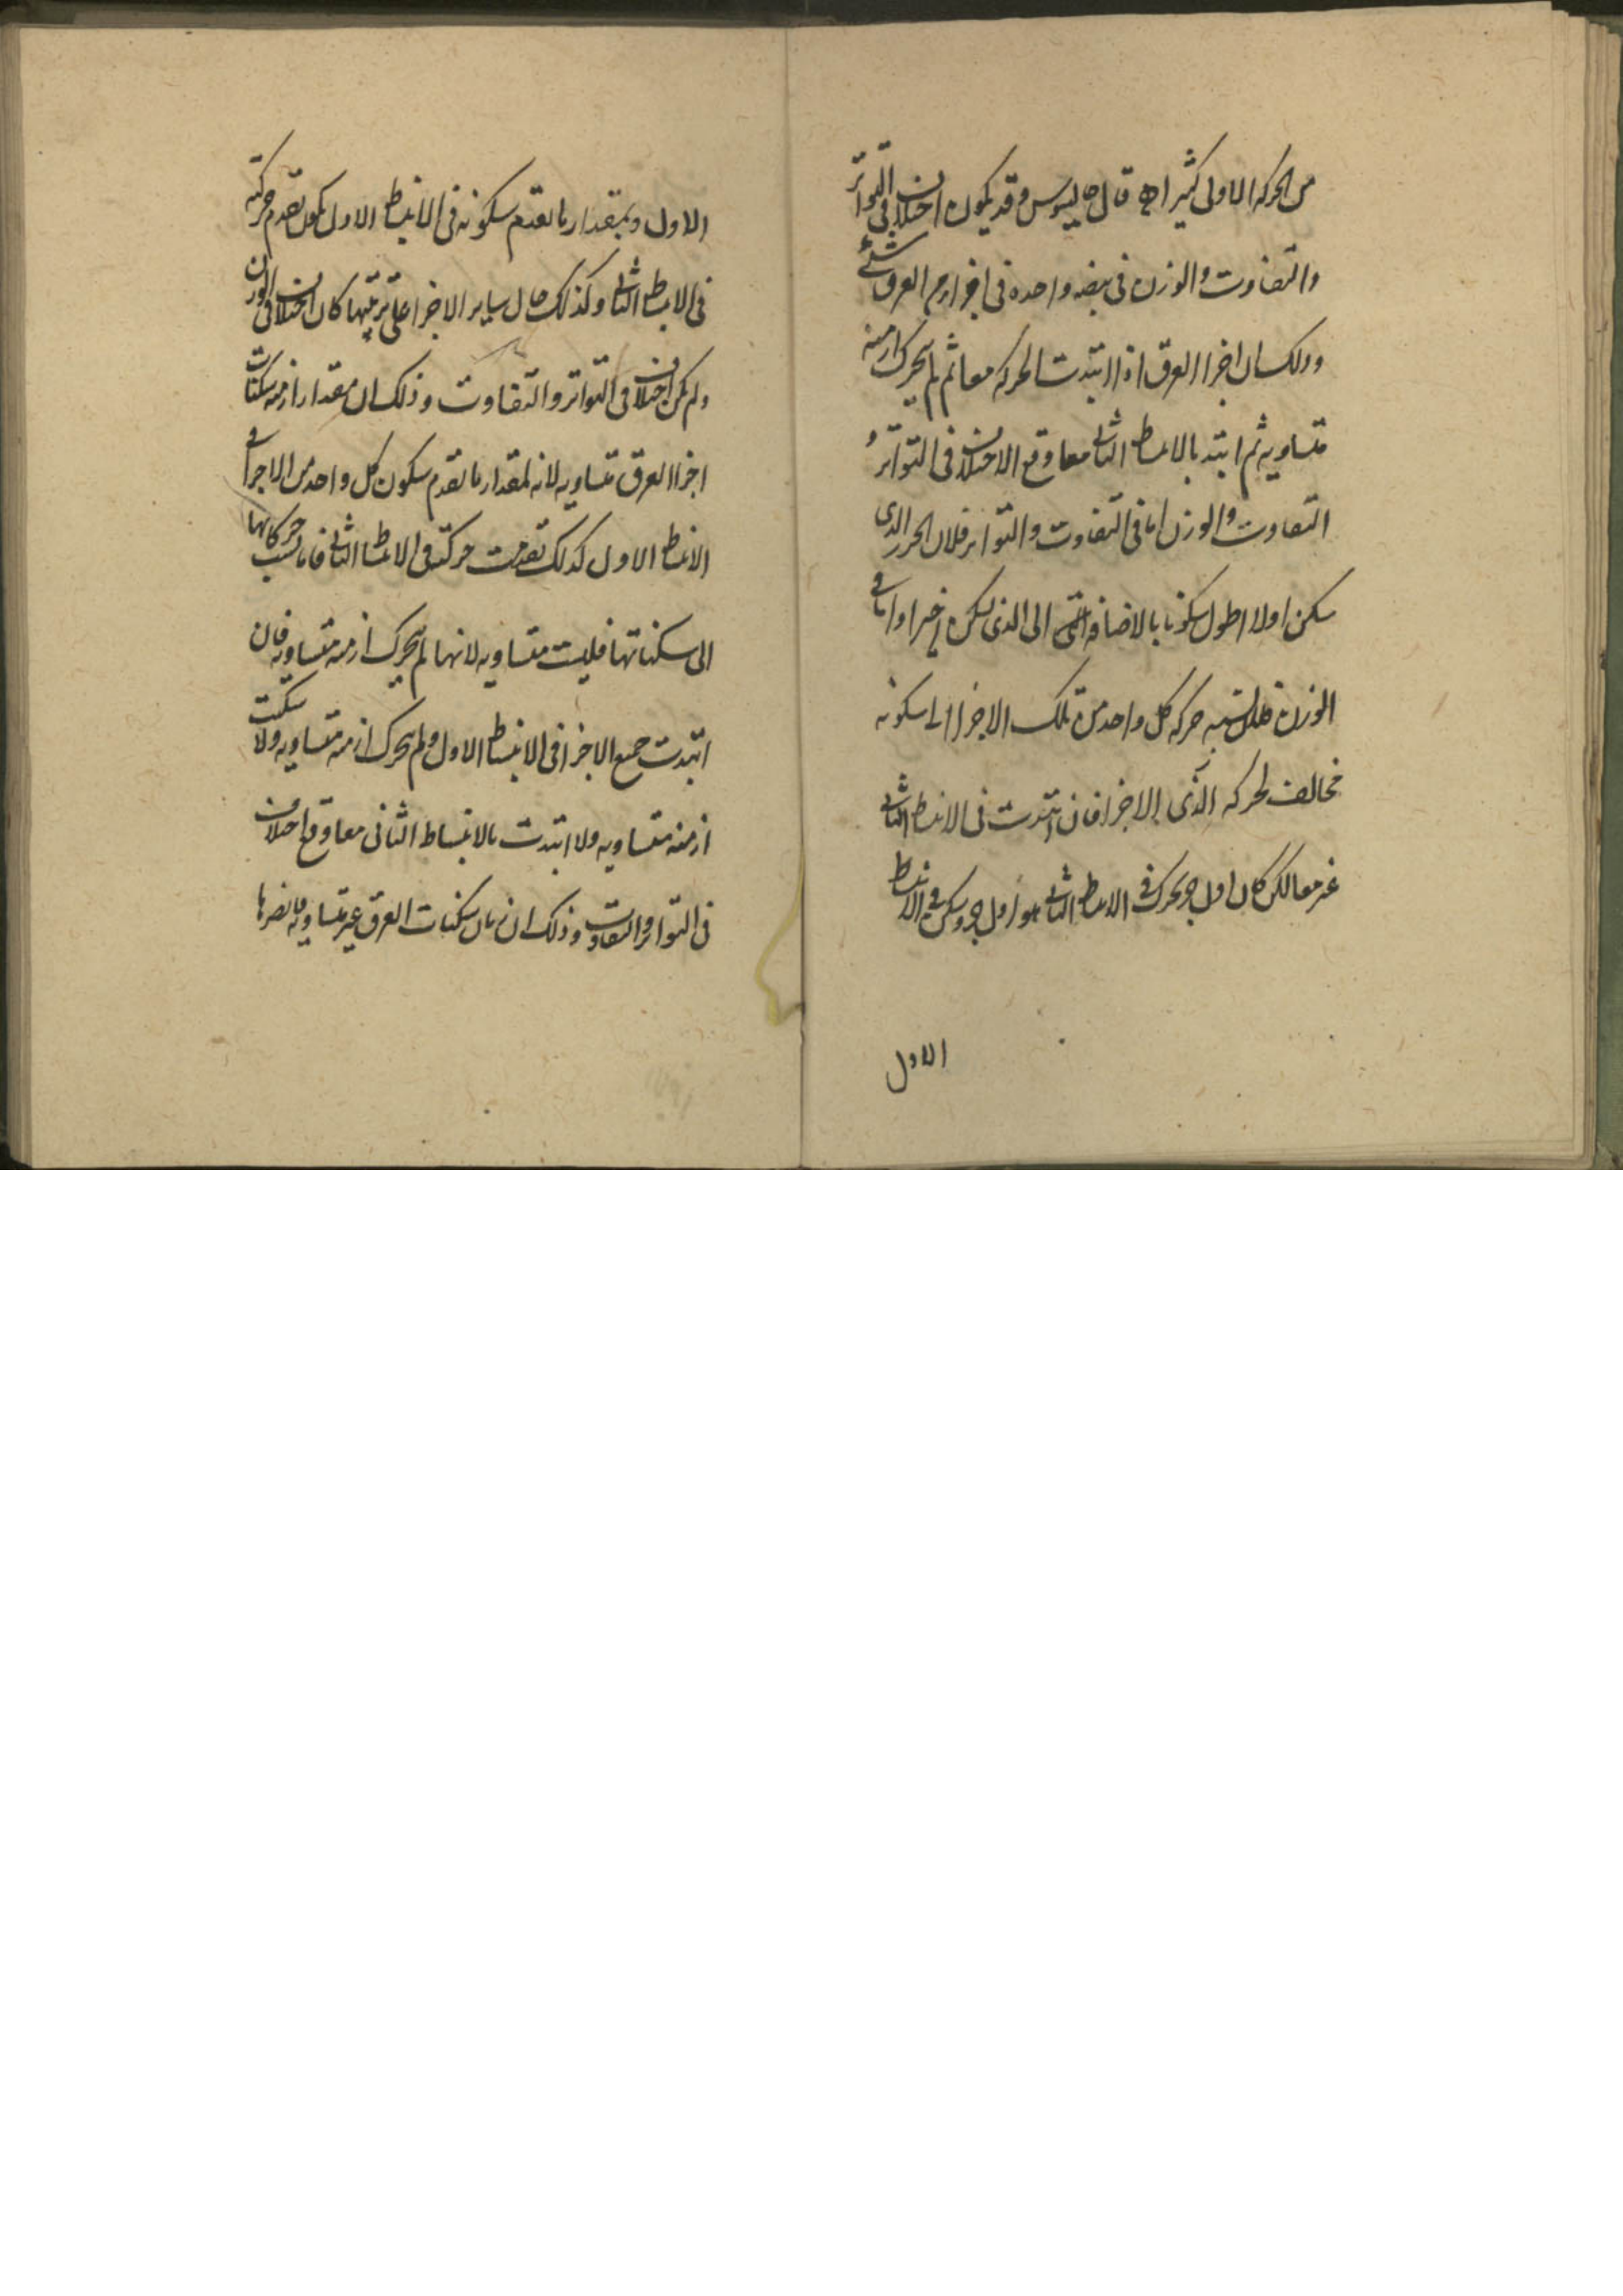 من الحركه الاولى كثيرا قال جالينوس وقد يكون اختلاف فى التواتر
والتفاوت والوزن فى نبضه واحده فى اجزا من العرق شتى
وذلك ان اجزا العرق اذا ابتدت الحركه معا ثم لم يتحرك ازمنه
متساويه ثم ابتد بالانبساط الثانى معا وقع الاختلاف فى التواتر و
التفاوت والوزن اما فى التفاوت والتواتر فلان الجزء الذى
سكن اولا اطول سكونا بالاضافه الى الذى سكن اخيرا واما فى
الوزن فلان نسبه حركه كل واحد من تلك الاجزا الى سكونه
مخالف لحركه الاجزا فان ابتدت فى الانبساط الثانى
غير معا لكن كان اول جزو تحرك فى الانبساط الثانى هو اول جزو سكن فى الانبساط
الاول
الاول وبمقدار ما تقدم سكونه فى الانبساط الاول يكون تقدم حركته
فى الانبساط الثانى وكذلك حال ساير الاجزا على ترتيبها كان اختلاف فى الوزن
ولم يكن اختلاف فى التواتر والتفاوت وذلك ان مقدار ازمنه سكنات
اجزا العرق متساويه لانه لمقدار ما تقدم سكون كل واحد من الاجزا فى
الانبساط الاول كذلك تقدمت حركته فى الانبساط الثانى فاما نسب حركاتها
الى سكناتها فليست متساويه لانها لم يتحرك ازمنه متساويه فان
ابتدت جميع الاجزا فى الانبساط الاول ولم يتحرك ازمنه متساويه ولا سكنت
ازمنه متساويه ولا ابتدت بالانبساط الثانى معا وقع اختلاف
فى التواتر والتفاوت وذلك ان زمان سكنات العرق غير متساويه